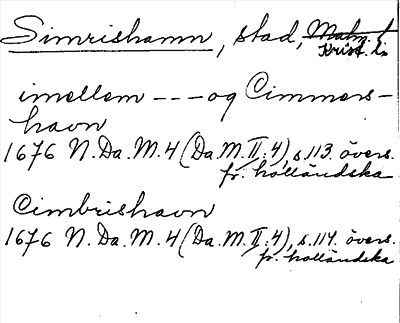 Simrishamn, stad, Malm. l
Krist. län
imellem --- og Cimmers-
havn
1676 N.Da.M.4 (Da.M.II:4), s.113. övers.
fr. holländska
Cimbrishavn
1676 N.Da.M.4 (Da.M.II:4), s.114. övers.
fr. holländska